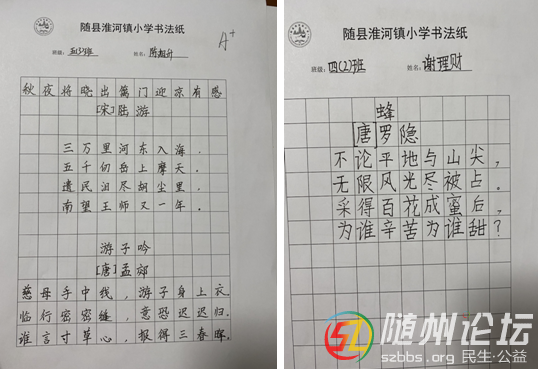 随县淮河镇小学书法纸
A+
班级：五(3)班 姓名：陈超升
秋夜将晓出篱门迎凉有感
[宋]陆游
三万里河东入海，
五千仞岳上摩天。
遗民泪尽胡尘里，
南望王师又一年。
游子吟
[唐]孟郊
慈母手中线，游子身上衣。
临行密密缝，意恐迟迟归。
谁言寸草心，报得三春晖。
随县淮河镇小学书法纸
班级：四(2)班 姓名：谢理财
蜂
[唐]罗隐
不论平地与山尖，
无限风光尽被占。
采得百花成蜜后，
为谁辛苦为谁甜？
随州论坛
szbbs.org 民生·公益